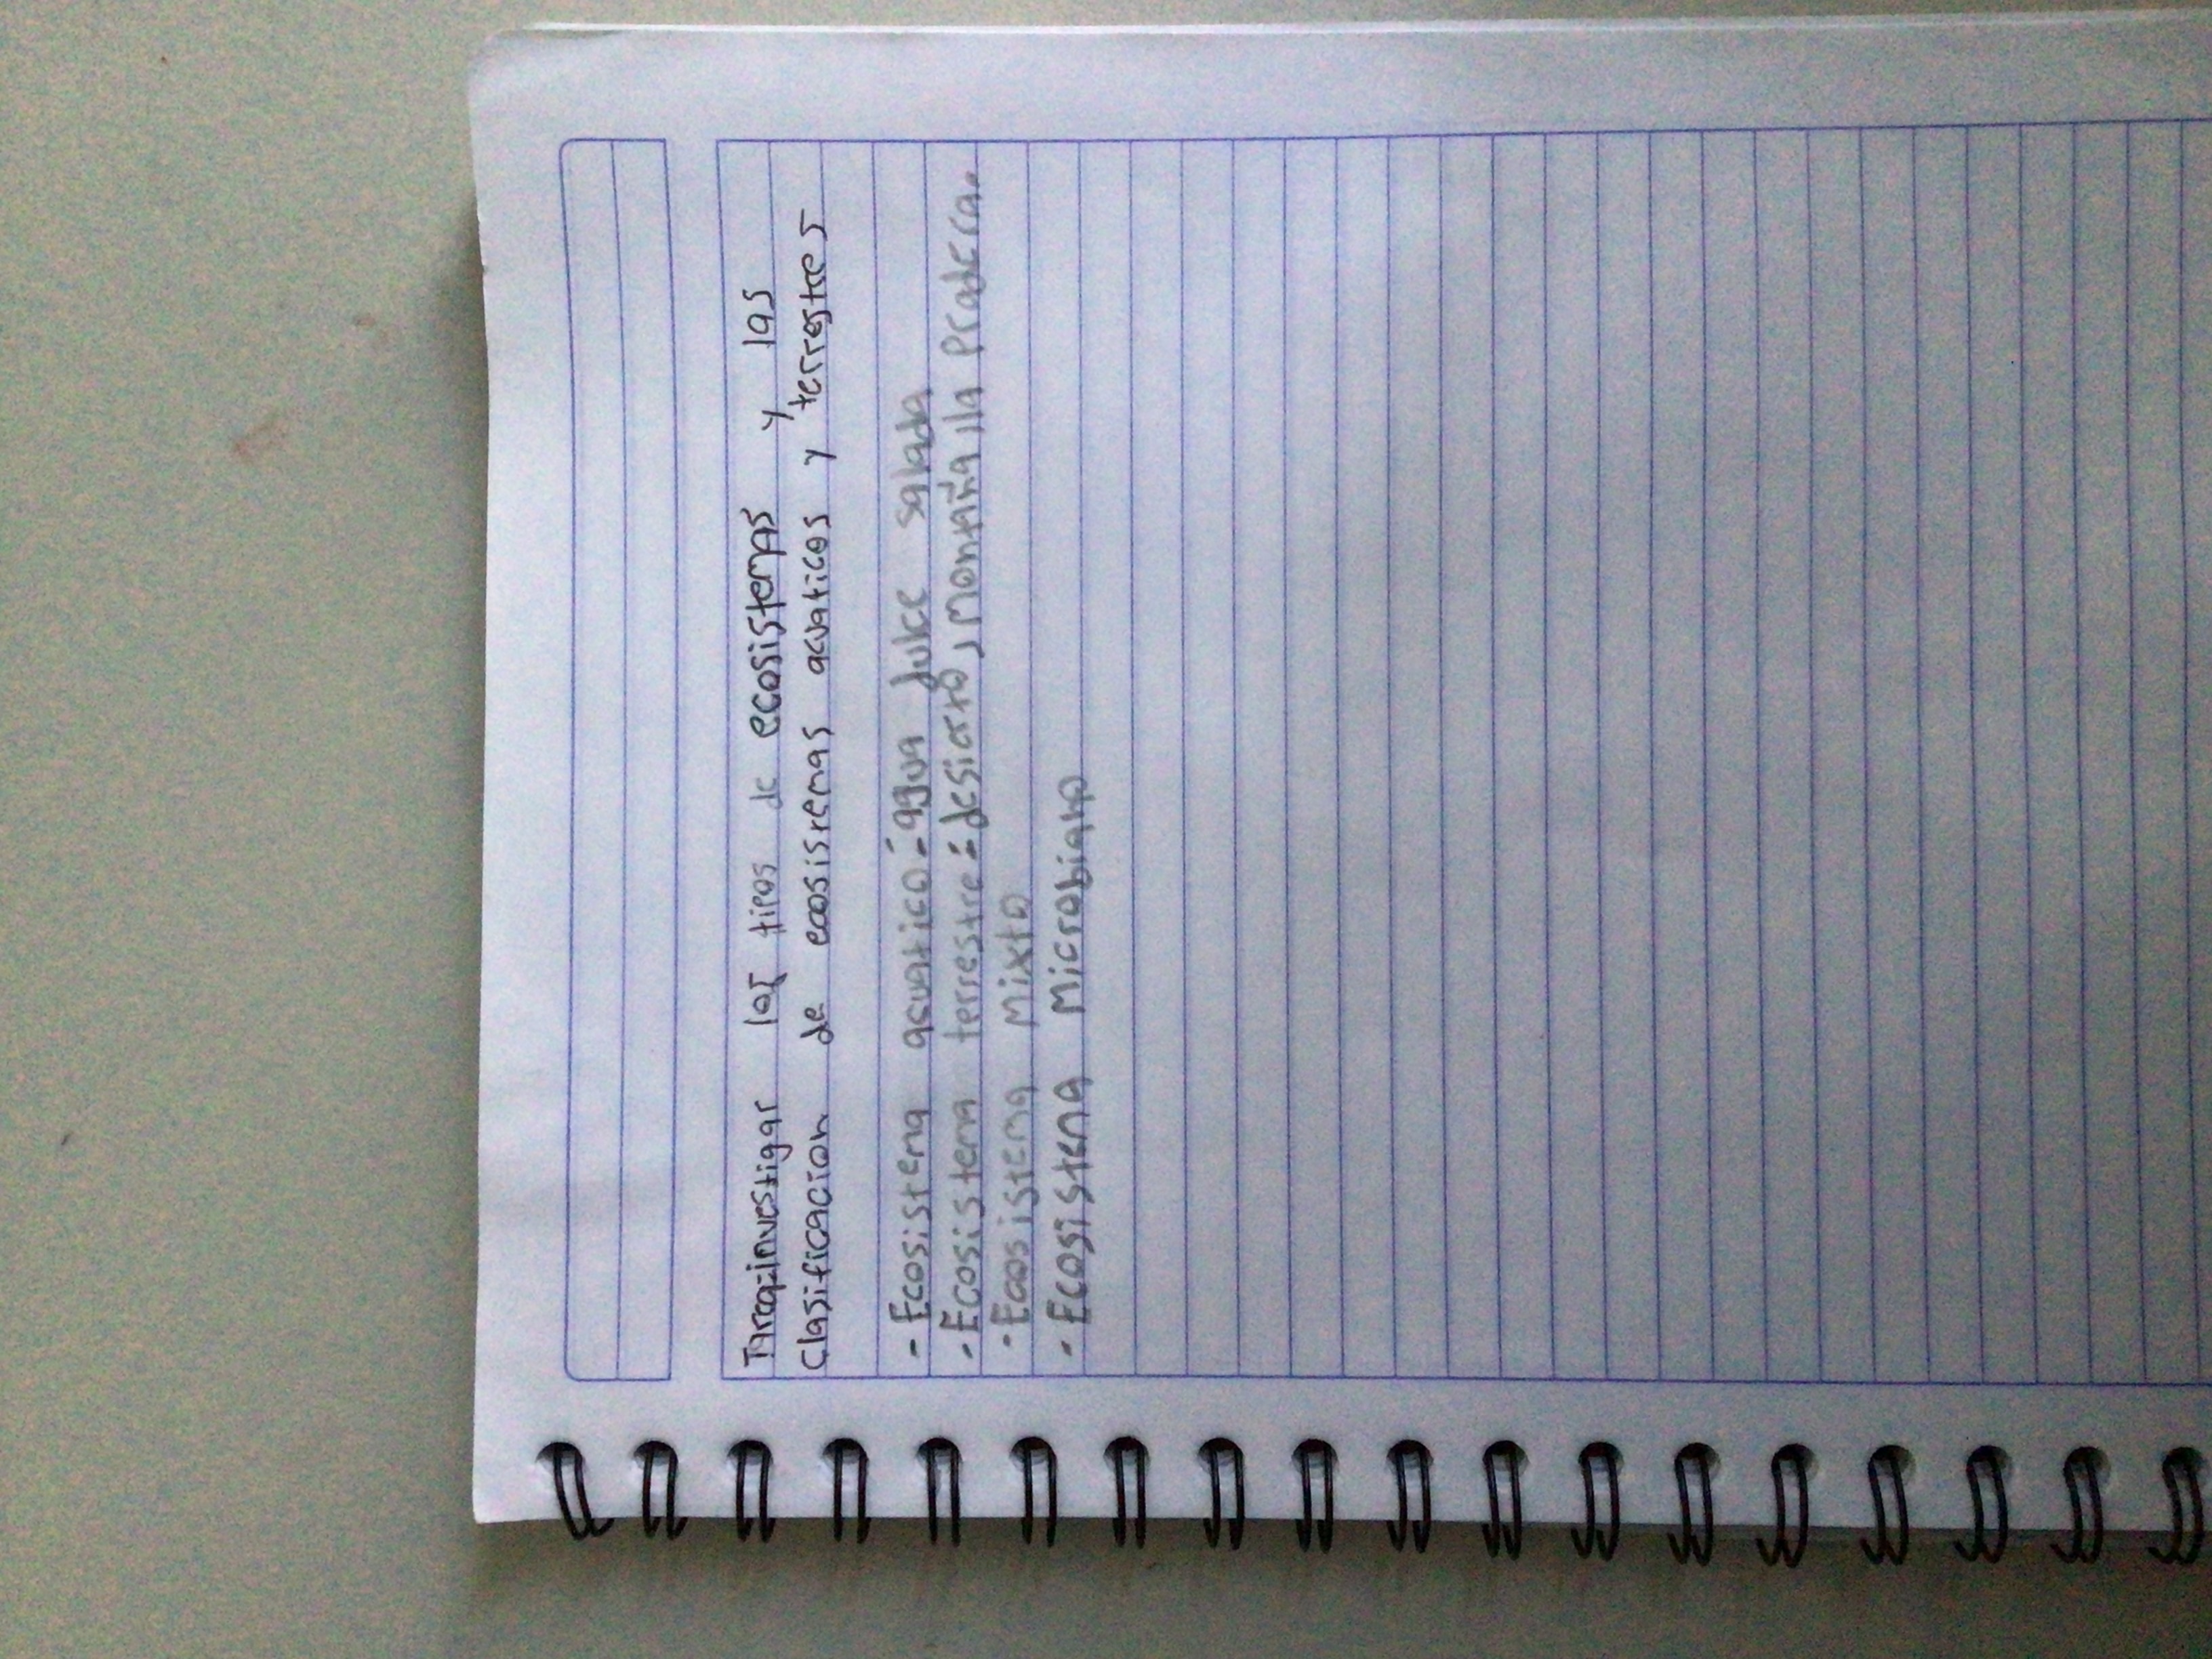 Tarea:investigar los tipos de ecosistemas y las
Clasificacion de ecosistemas acuaticos y terrestres
- Ecosistema acuatico:agua dulce salada
- Ecosistema terrestre:desierto, montaña, la pradera.
- Ecosistema Mixto
- Ecosistema Microbiano